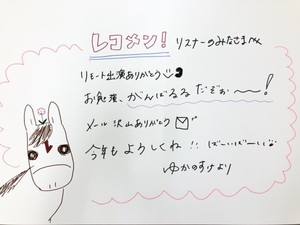 レコメン！ リスナーのみなさまへ
リモート出演ありがとう
お勉強、がんばるるだぞぉ〜！
メール沢山ありがとう
今年もよろしくね！！ばーいばーい
ゆかのすけより